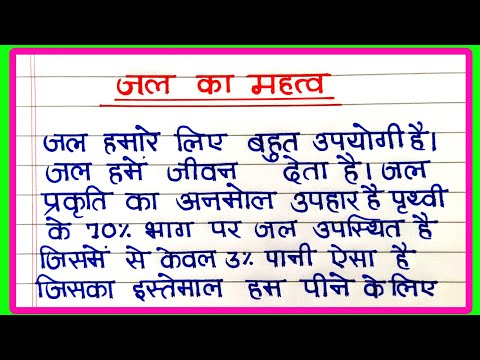 जल का महत्व
जल हमारे लिए बहुत उपयोगी है।
जल हमें जीवन देता है। जल
प्रकृति का अनमोल उपहार है पृथ्वी
के 70% भाग पर जल उपस्थित है
जिसमें से केवल 3% पानी ऐसा है
जिसका इस्तेमाल हम पीने के लिए